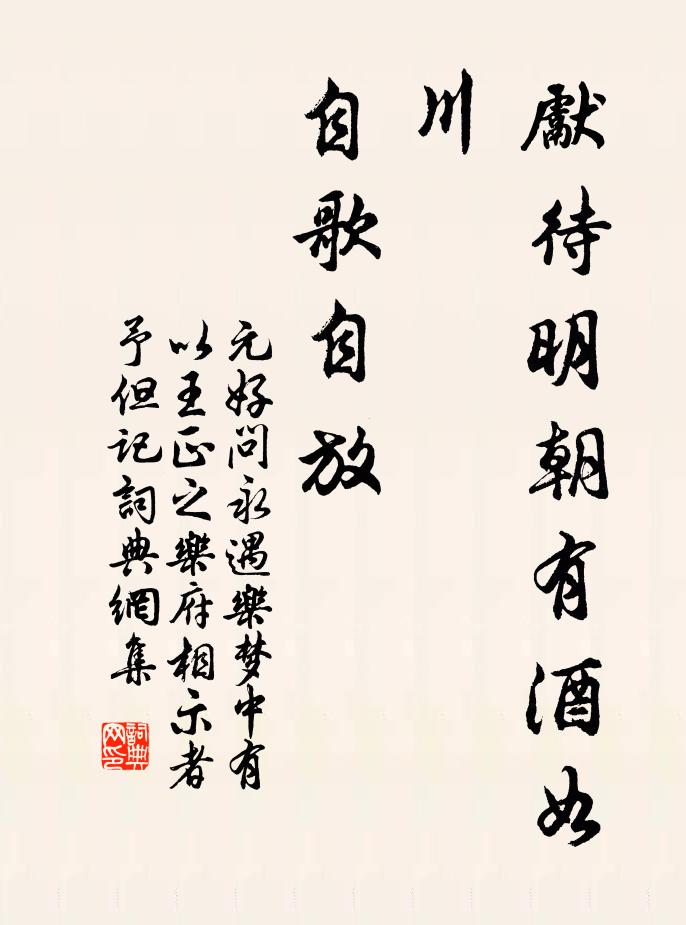 獻待明朝有酒如
川
自歌自放
元好问永遇樂梦中有
以王正之樂府相示者
予但记詞典網集
詞典
网印